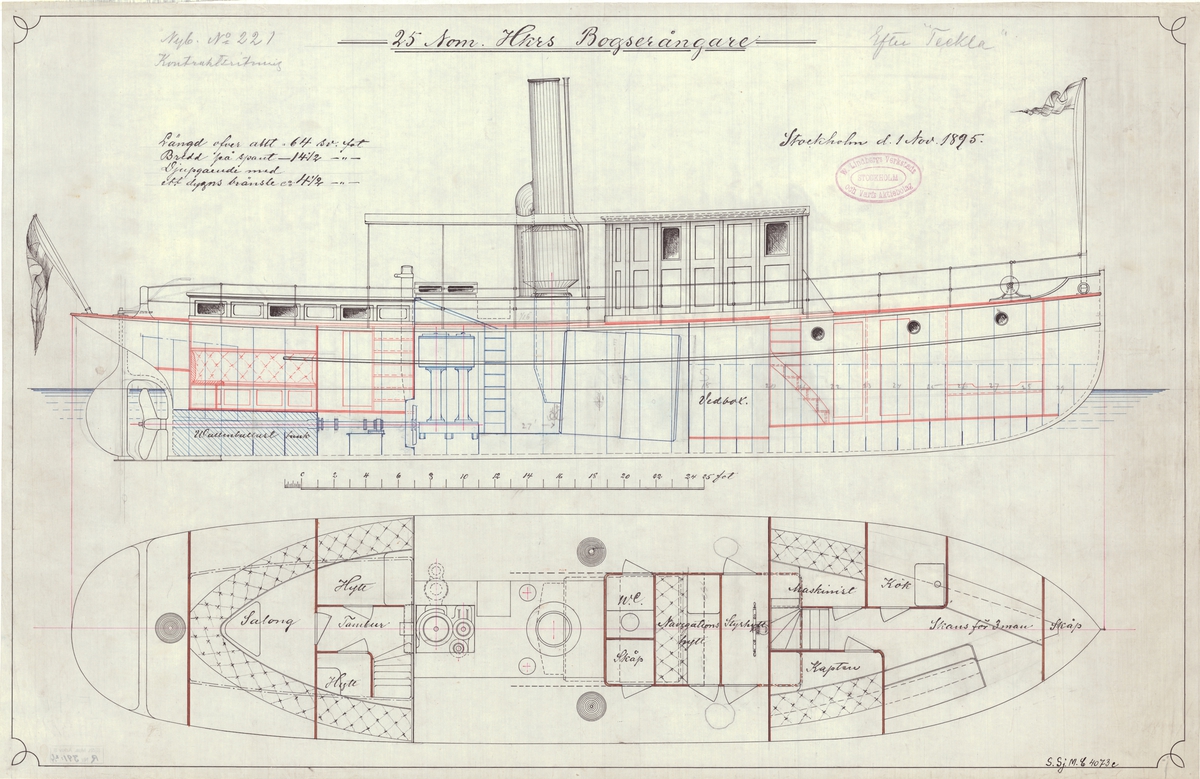 Nyb. No 221
Kontraktsritning
25 Nom. Hkrs Bogserångare
Efter "Teckla"
Längd öfver allt - 64 sv. fot
Bredd på spant — 14 1/2 — " —
Djupgående med
ett dygns bränsle ca 4 1/2 — " —
Stockholm d. 1 Nov 1895.
W. Lindbergs Verkstads
STOCKHOLM
Vedbox.
Wattenballast tank
0 2 4 6 8 10 12 14 16 18 20 22 24 25 fot
Salong
Hytt
Tambur
Hytt
W.C.
Skåp
Navigations
hytt
Styrhytt
Maskinist
Kapten
Kök
Skans för 3 man
Skåp
S. Sj M. C 4073 e